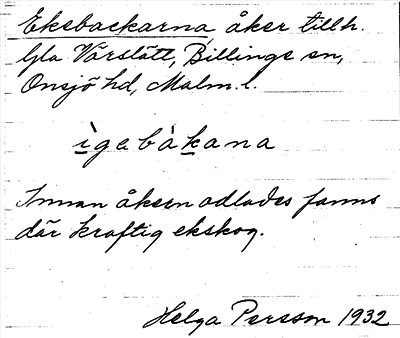 Ekebackarna, åker tillh.
Gla Varslätt, Billinge sn,
Onsjö hd, Malm. l.
ìgebàkana
Innan åkern odlades fanns
där kraftig ekskog.
Helga Persson 1932